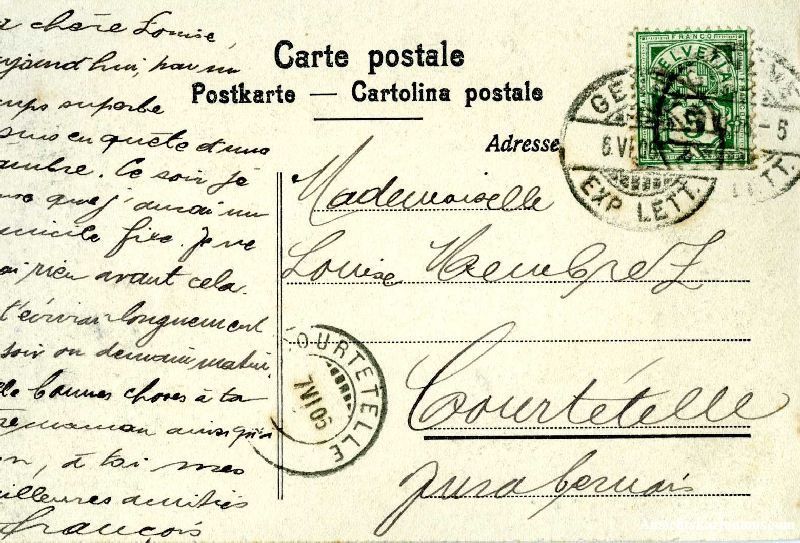 a chère Louise,
ujourd'hui, par un
emps superbe
suis en quête d'une
ambre. Ce soir je
que j'aurai un
micile fixe. Je ne
ai rien avant cela.
t'écrirai longuement
soir ou demain matin.
Bonnes choses à ta
maman ainsi qu'à
on, à toi mes
eilleures amitiés
françois
Carte postale
Postkarte — Cartolina postale
Adresse
FRANCO
HELVETIA
5
GE
6 VI 06
EXP. LETT.
Mademoiselle
Louise
Courtételle
Jura bernois
COURTETELLE
7 VI 06